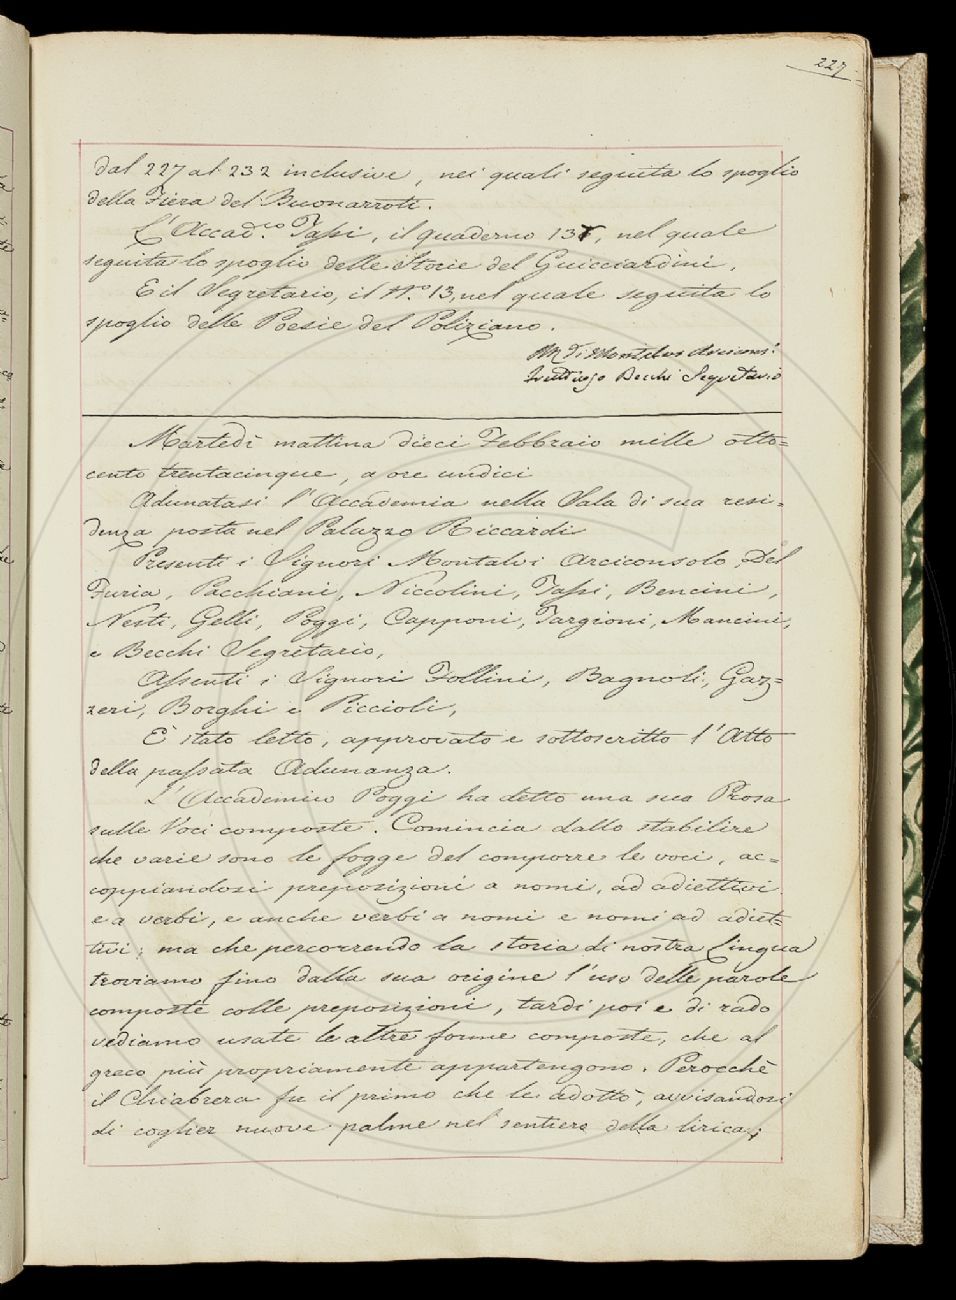 227
dal 227 al 232 inclusive, nei quali seguita lo spoglio
della Fiera del Buonarroti.
L'Accad.co Tassi, il quaderno 137, nel quale
seguita lo spoglio delle Storie del Guicciardini.
E il Segretario, il N.o 13, nel quale seguita lo
spoglio delle Poesie del Poliziano.
Arciconso
Becchi Segretario
Martedì mattina dieci Febbraio mille otto=
cento trentacinque, a ore undici
Adunatasi l'Accademia nella Sala di sua resi=
denza posta nel Palazzo Riccardi
Presenti i Signori Montalvi Arciconsolo, Del
Furia, Pacchiani, Niccolini, Tassi, Bencini,
Nesti, Gelli, Poggi, Capponi, Targioni, Mancini,
e Becchi Segretario,
Assenti i Signori Follini, Bagnoli, Gaz=
zeri, Borghi e Piccioli,
È stato letto, approvato e sottoscritto l'Atto
della passata Adunanza.
L'Accademico Poggi ha detto una sua Prosa
sulle Voci composte. Comincia dallo stabilire
che varie sono le fogge del comporre le voci, ac=
coppiandosi preposizioni a nomi, ad adiettivi
e a verbi, e anche verbi a nomi e nomi ad adiet=
tivi; ma che percorrendo la storia di nostra Lingua
troviamo fino dalla sua origine l'uso delle parole
composte colle preposizioni, tardi poi e di rado
vediamo usate le altre forme composte, che al
greco più propriamente appartengono. Perocchè
il Chiabrera fu il primo che le adottò, avvisandosi
di coglier nuove palme nel sentiero della lirica;